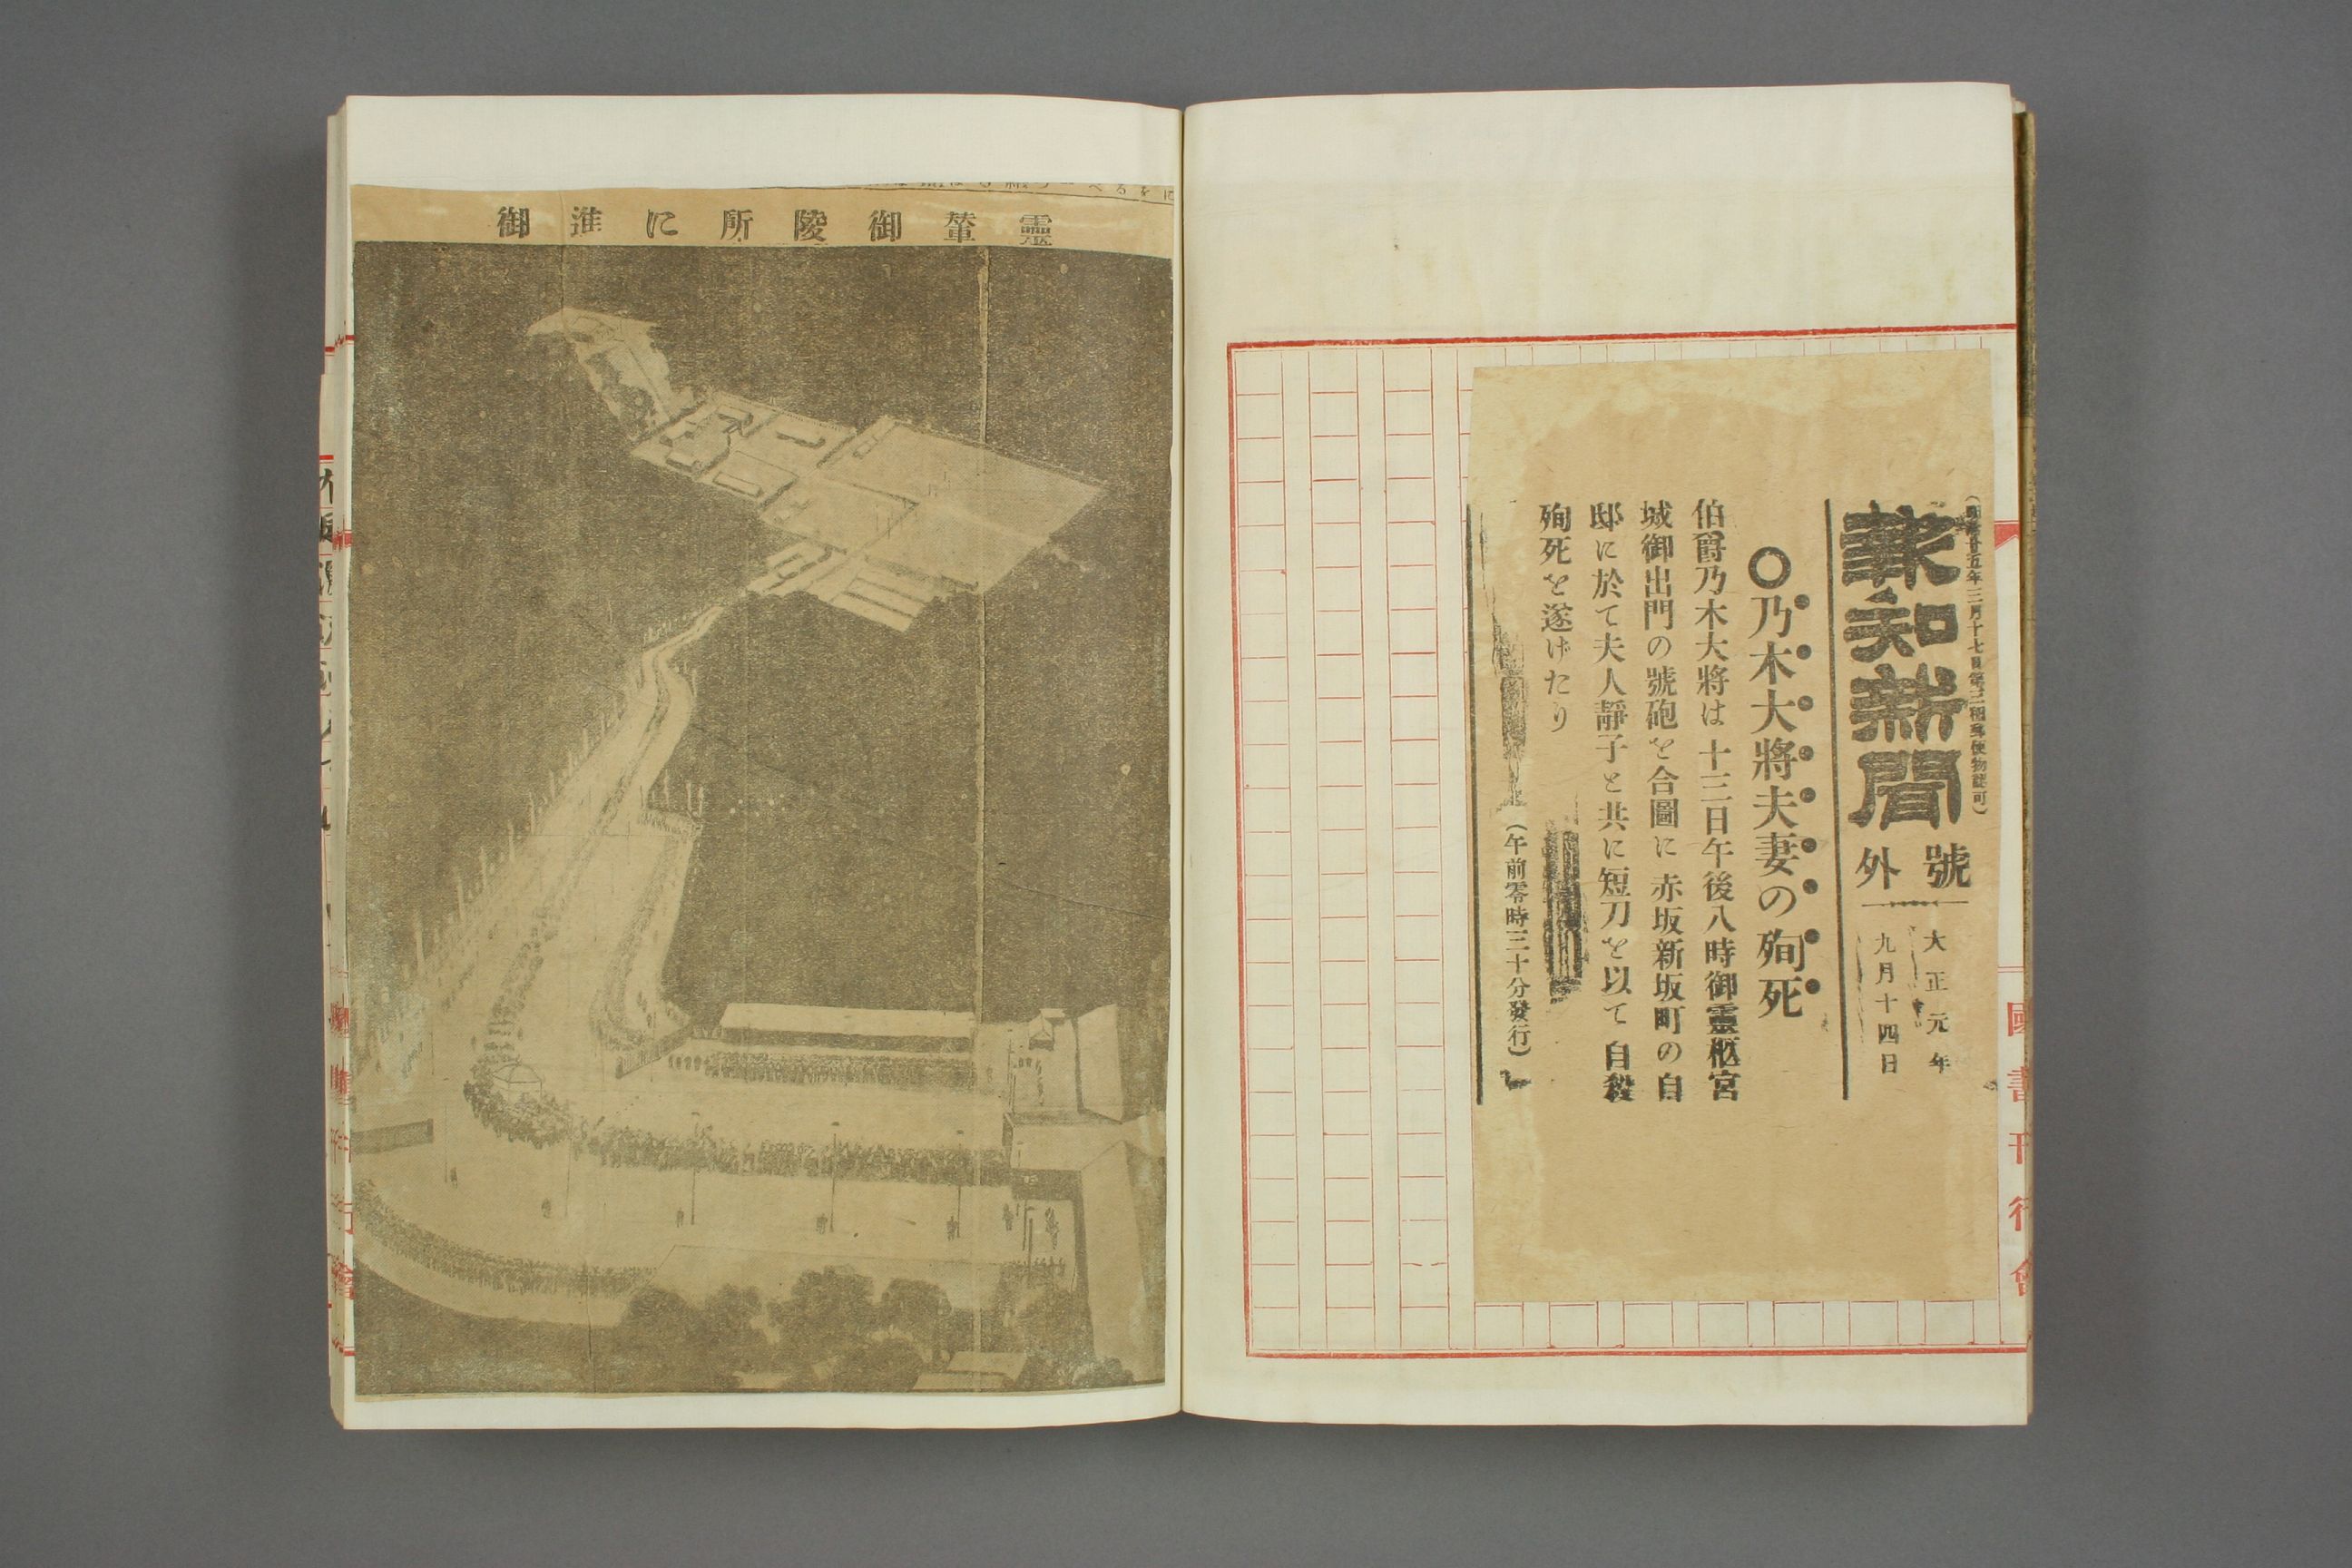 報知新聞
號外
大正元年
九月十四日
○乃木大將夫妻の殉死
伯爵乃木大將は十三日午後八時御靈柩宮
城御出門の號砲を合圖に赤坂新坂町の自
邸に於て夫人靜子と共に短刀を以て自殺
殉死を遂げたり
(午前零時三十分發行)
國書刊行會
靈輦御陵所に進御